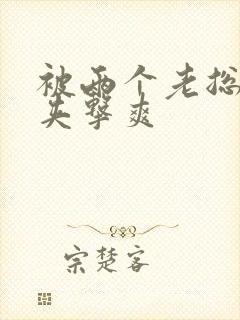 被两个老总
夹击爽
宗楚客